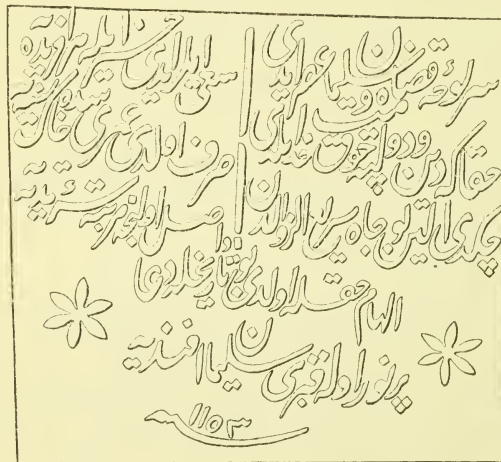 سر لوحۀ قضات سلیمان عصر ایدی سعی ایلر ایدی خیر ایله
حقا که دین و دولته چوق خدمت ایلدی صرف اولدی عمری سدۀ خاقانیه
چکدی الین بو جاه سریع الزوالدن واصل اولنجه مرتبۀ
الهام حقله اولدی بو تاریخله دعا
پر نور اوله قبری سلیمان افندیه
سنه ١١٥٣